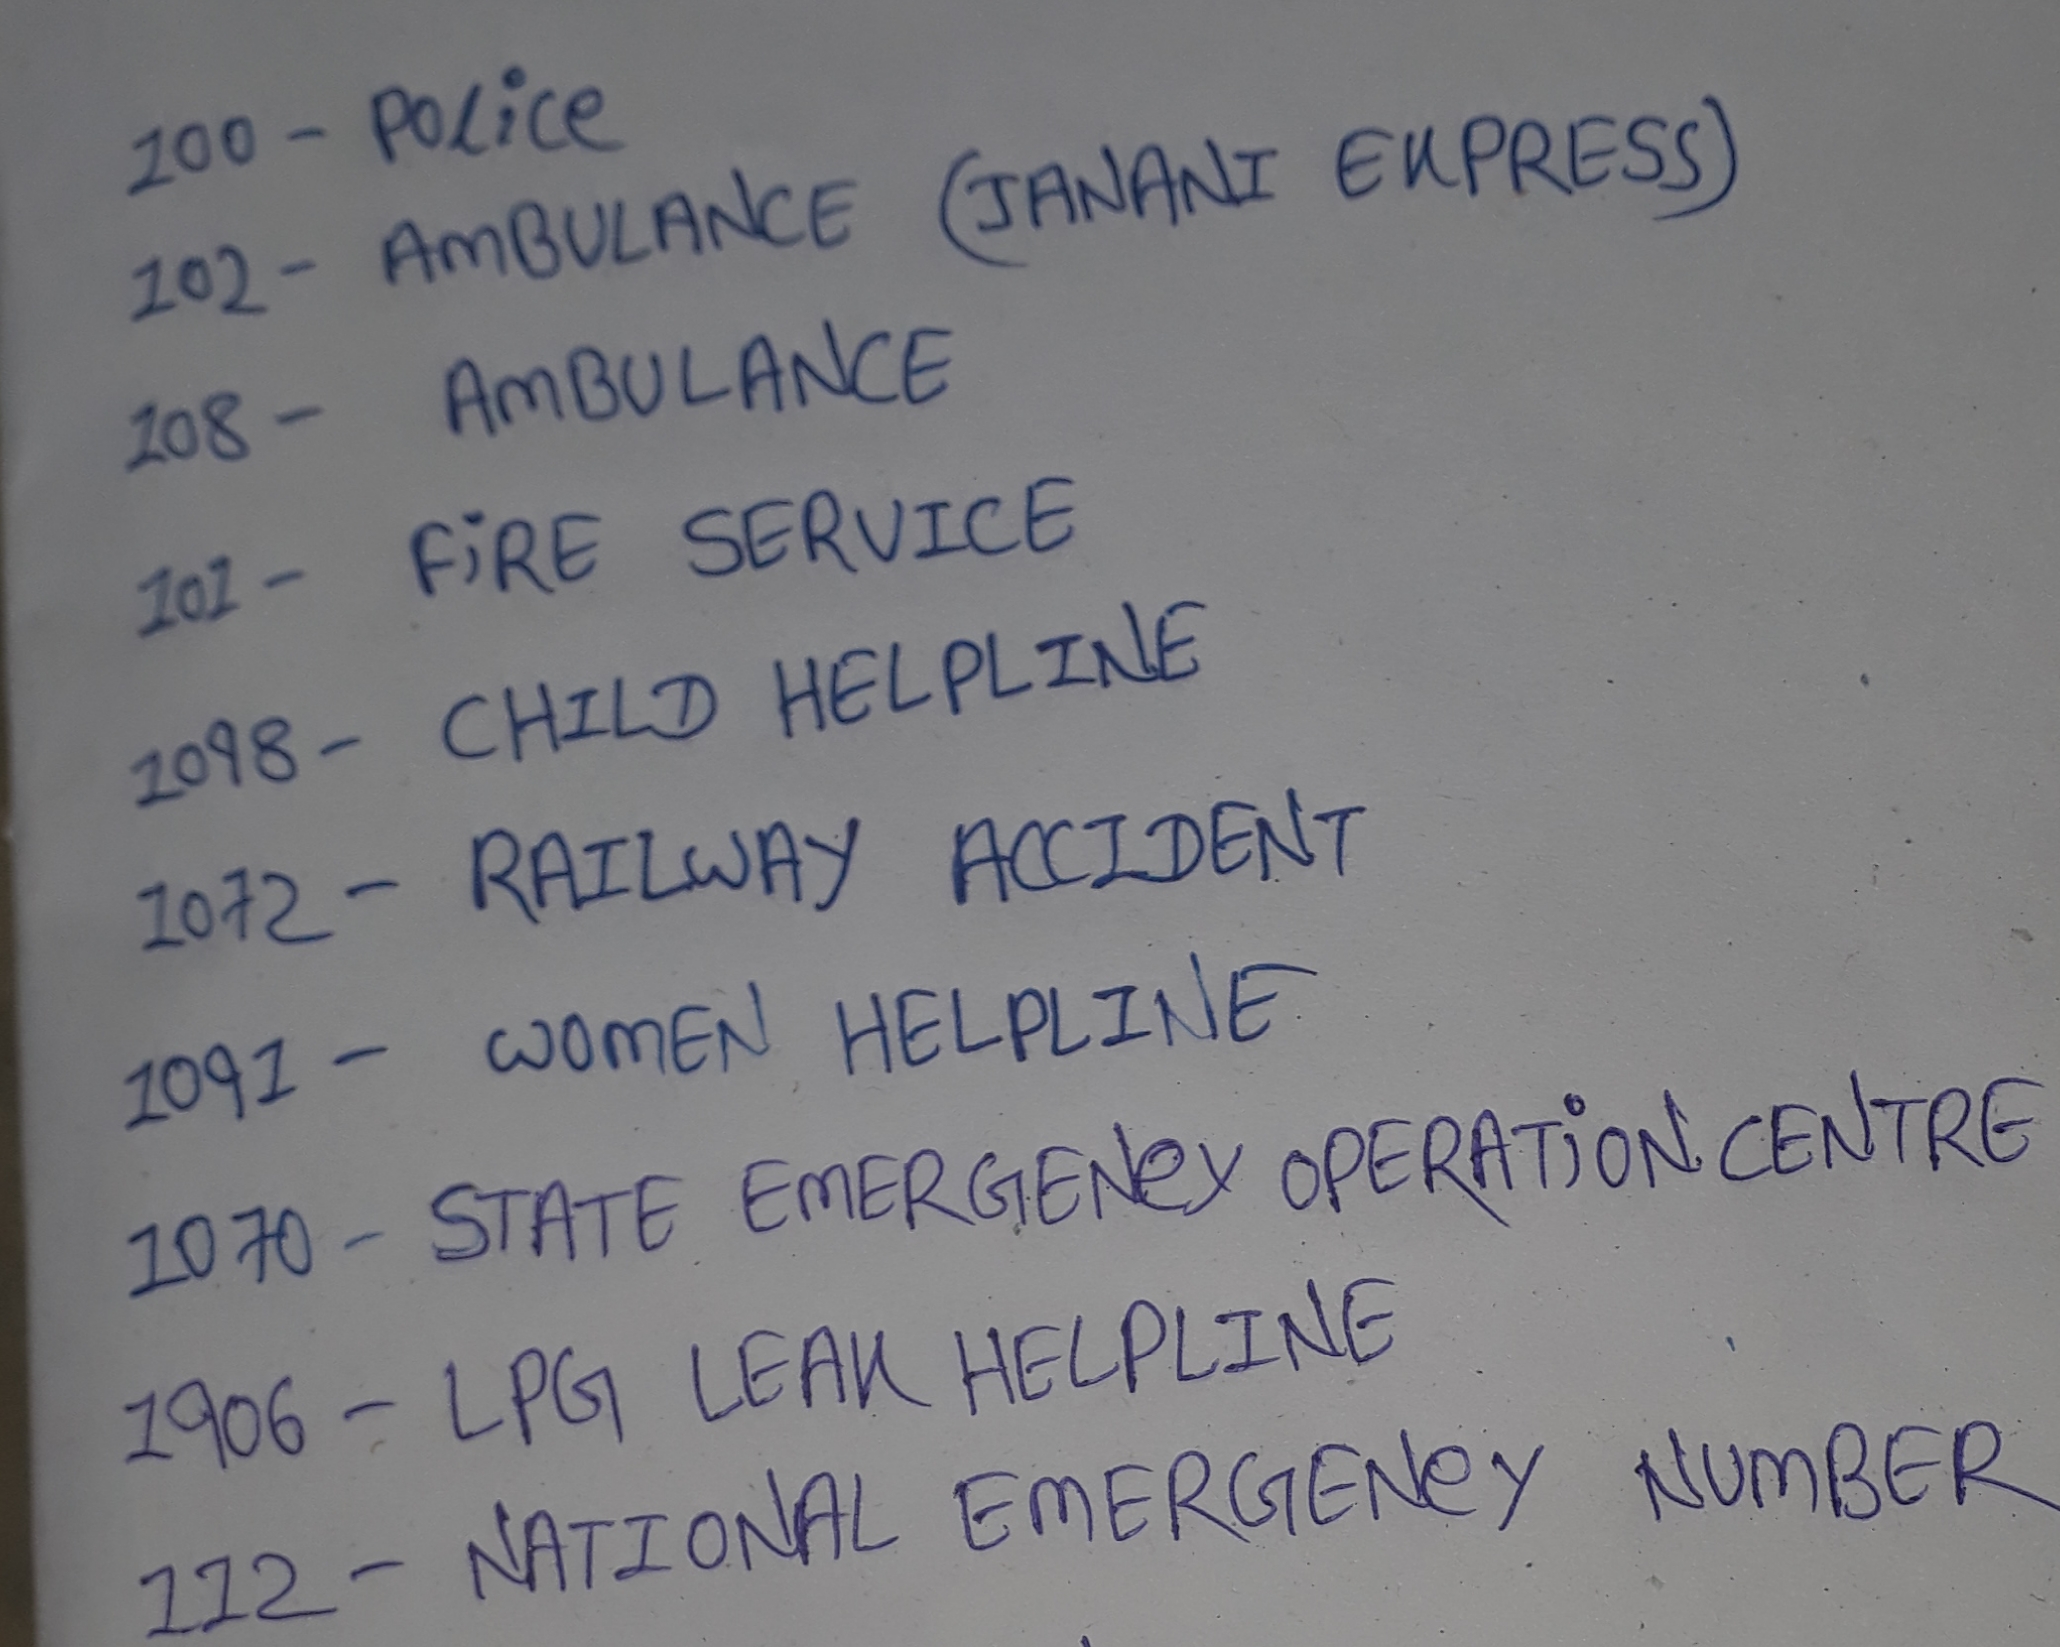 100 - Police
102 - AMBULANCE (JANANI EXPRESS)
108 - AMBULANCE
101 - FiRE SERVICE
1098 - CHILD HELPLINE
1072 - RAILWAY ACCIDENT
1091 - WOMEN HELPLINE
1070 - STATE EMERGENCY OPERATiON CENTRE
1906 - LPG LEAK HELPLINE
112 - NATIONAL EMERGENCY NUMBER